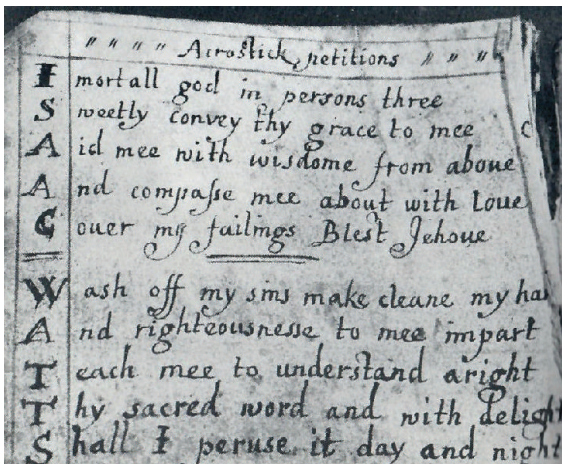 " " " " Acrostick petitions " " "
Imortall god in persons three
Sweetly convey thy grace to mee
Aid mee with wisdome from aboue
And compasse mee about with loue
Couer my failings Blest Jehoue
Wash off my sins make cleane my ha
And righteousnesse to mee impart
Teach mee to understand aright
Thy sacred word and with delight
Shall I peruse it day and night